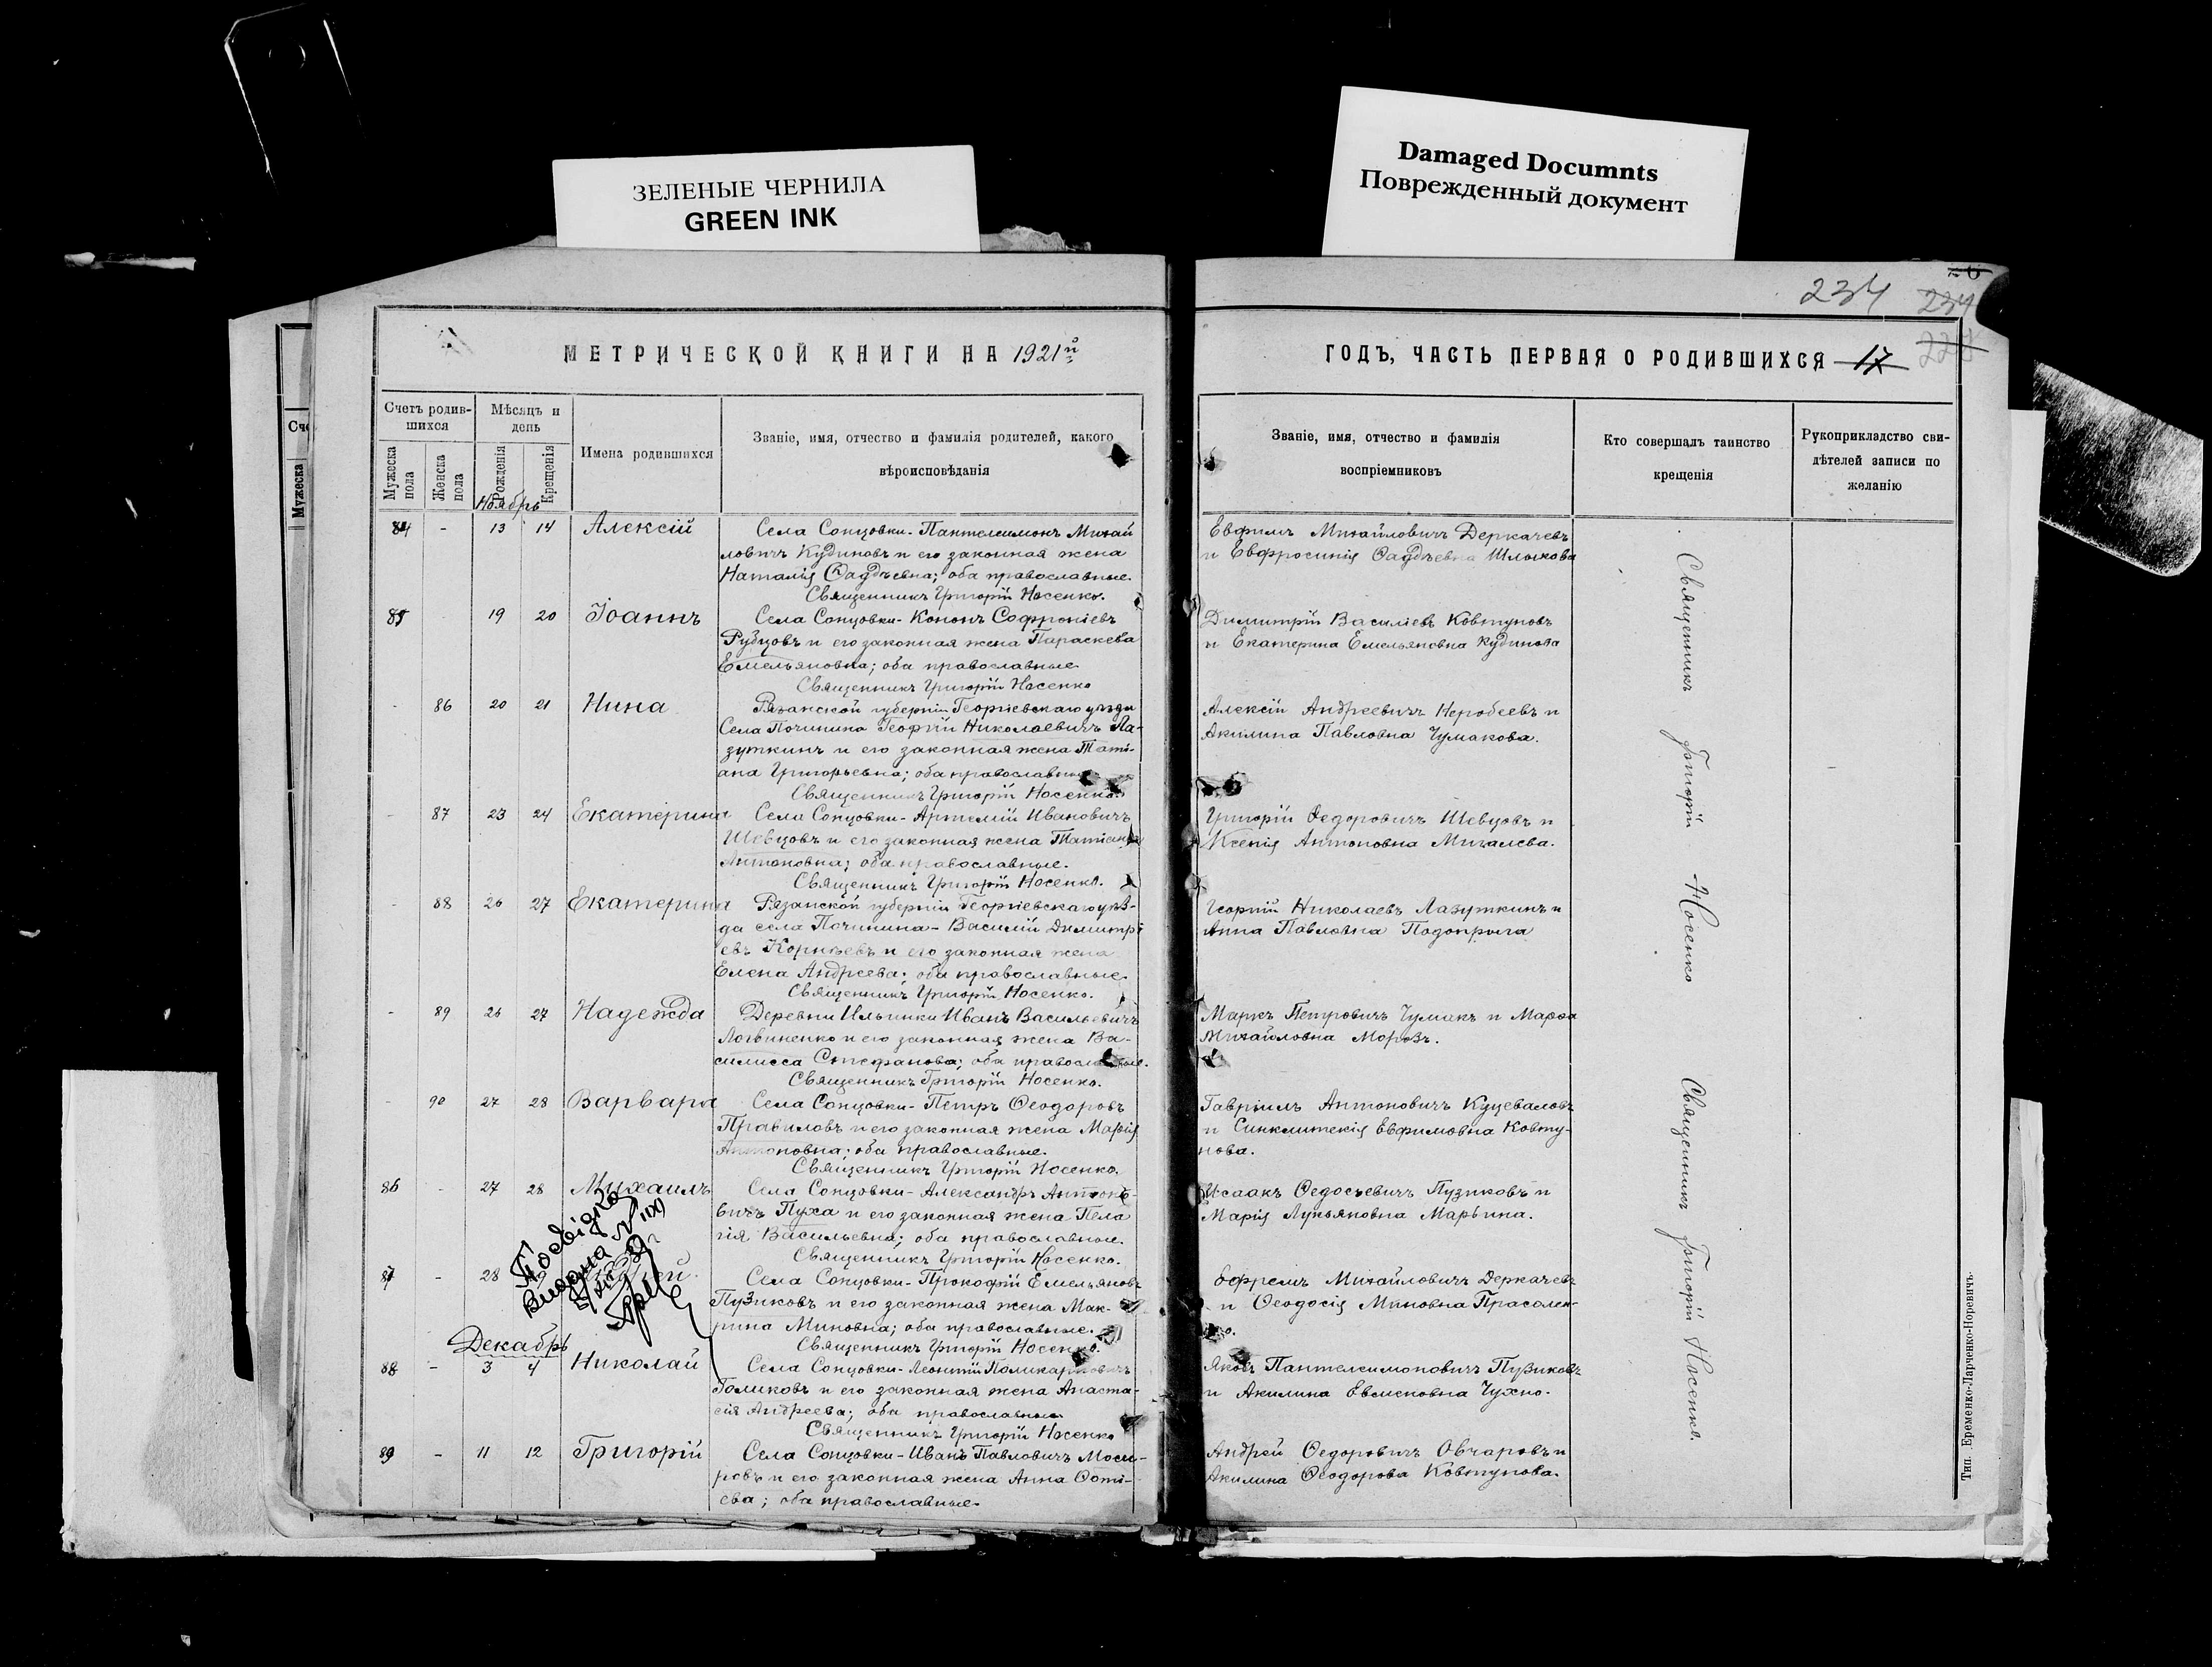 ЗЕЛЕНЫЕ ЧЕРНИЛА
GREEN INK
Damaged Documnts
Поврежденный документ
234
234
МЕТРИЧЕСКОЙ КНИГИ НА 1921й
ГОДЪ, ЧАСТЬ ПЕРВАЯ О РОДИВШИХСЯ 17
Счетъ родив-
шихся
Мѣсяцъ и
день
Мужеска
пола
Женска
пола
Рожденія
Крещенія
Имена родившихся
Званіе, имя, отчество и фамилія родителей, какого
вѣроисповѣданія
Званіе, имя, отчество и фамилія
воспріемниковъ
Кто совершалъ таинство
крещенія
Рукоприкладство сви-
дѣтелей записи по
желанію
Мужеска
Ноябрь
84 - 13 14 Алексій
Села Сонцовки - Пантелеимонъ Михай
ловичъ Кудиновъ и его законная жена
Наталія Ѳаддѣевна; оба православные.
Священникъ Григорій Носенко.
Евфимъ Михайловичъ Деркачевъ
и Евфросинія Ѳаддѣевна Шлыкова
85 19 20 Іоаннъ
Села Сонцовки - Кононъ Софроніевъ
Рубцовъ и его законная жена Параскева
Емельяновна; оба православные
Священникъ Григорій Носенко
Димитрій Василіевъ Ковтуновъ
и Екатерина Емельяновна Кудинова
- 86 20 21 Нина
Рязанской губерніи Георгіевскаго уѣзда
Села Починина Георгій Николаевичъ Ла-
зуткинъ и его законная жена Таті-
ана Григорьевна; оба православные
Священникъ Григорій Носенко.
Алексій Андреевичъ Неробеевъ и
Акилина Павловна Чумакова.
- 87 23 24 Екатерина
Села Сонцовки - Артемій Ивановичъ
Шевцовъ и его законная жена Татіана
Антоновна; оба православные.
Священникъ Григорій Носенко.
Григорій Ѳедоровичъ Шевцовъ и
Ксенія Антоновна Михалева.
- 88 26 27 Екатерина
Рязанской губерніи Георгіевскаго уѣз-
да села Починина - Василій Димитрі
евъ Корнѣевъ и его законная жена
Елена Андреева; оба православные.
Священникъ Григорій Носенко.
Георгій Николаевъ Лазуткинъ и
Анна Павловна Подопрыга
- 89 26 27 Надежда
Деревни Ильинки Иванъ Васильевичъ
Логвиненко и его законная жена Ва-
силисса Стефанова; оба православные.
Священникъ Григорій Носенко.
Маркъ Петровичъ Чумакъ и Марѳа
Михайловна Морозъ.
- 90 27 28 Варвара
Села Сонцовки - Петръ Ѳеодоровъ
Правиловъ и его законная жена Марія
Антоновна; оба православные.
Священникъ Григорій Носенко.
Гавріилъ Антоновичъ Куцеваловъ
и Синклитекія Евфимовна Ковту-
нова.
86 - 27 28 Михаилъ
Села Сонцовки - Александръ Антоно-
вичъ Пуха и его законная жена Пела
гія Васильевна; оба православные.
Священникъ Григорій Носенко.
Исаакъ Ѳедосѣевичъ Пузиковъ и
Марія Лукьяновна Марьина.
87 - 28
Посвідка
видана №
Села Сонцовки - Прокофій Емельяновъ
Пузиковъ и его законная жена Мак-
рина Миновна; оба православные.
Священникъ Григорій Носенко.
Ефремъ Михайловичъ Деркачевъ
и Ѳеодосія Миновна Прасолен-
ко.
Декабрь
88 - 3 4 Николай
Села Сонцовки - Леонтій Поликарповичъ
Голиковъ и его законная жена Анаста-
сія Андреева; оба православные
Священникъ Григорій Носенко
Яковъ Пантелеимоновичъ Пузиковъ
и Акилина Евменовна Чухно.
89 - 11 12 Григорій
Села Сонцовки - Иванъ Павловичъ Моси-
ровъ и его законная жена Анна Ѳоти-
ева; оба православные.
Андрей Ѳедоровичъ Овчаровъ и
Акилина Ѳеодорова Ковтунова.
Священникъ Григорій Носенко
Священникъ Григорій Носенко.
Тип. Еременко-Ларченко-Норевичъ.